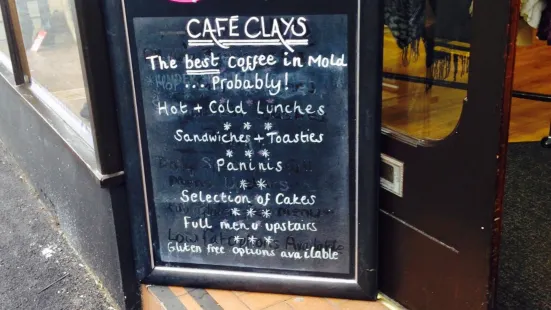 CAFÉ CLAYS
The best Coffee in Mold
... Probably!
Hot + Cold Lunches
* * *
Sandwiches + Toasties
* * *
Paninis
* *
Selection of Cakes
* * *
Full menu upstairs
* * *
Gluten free options available